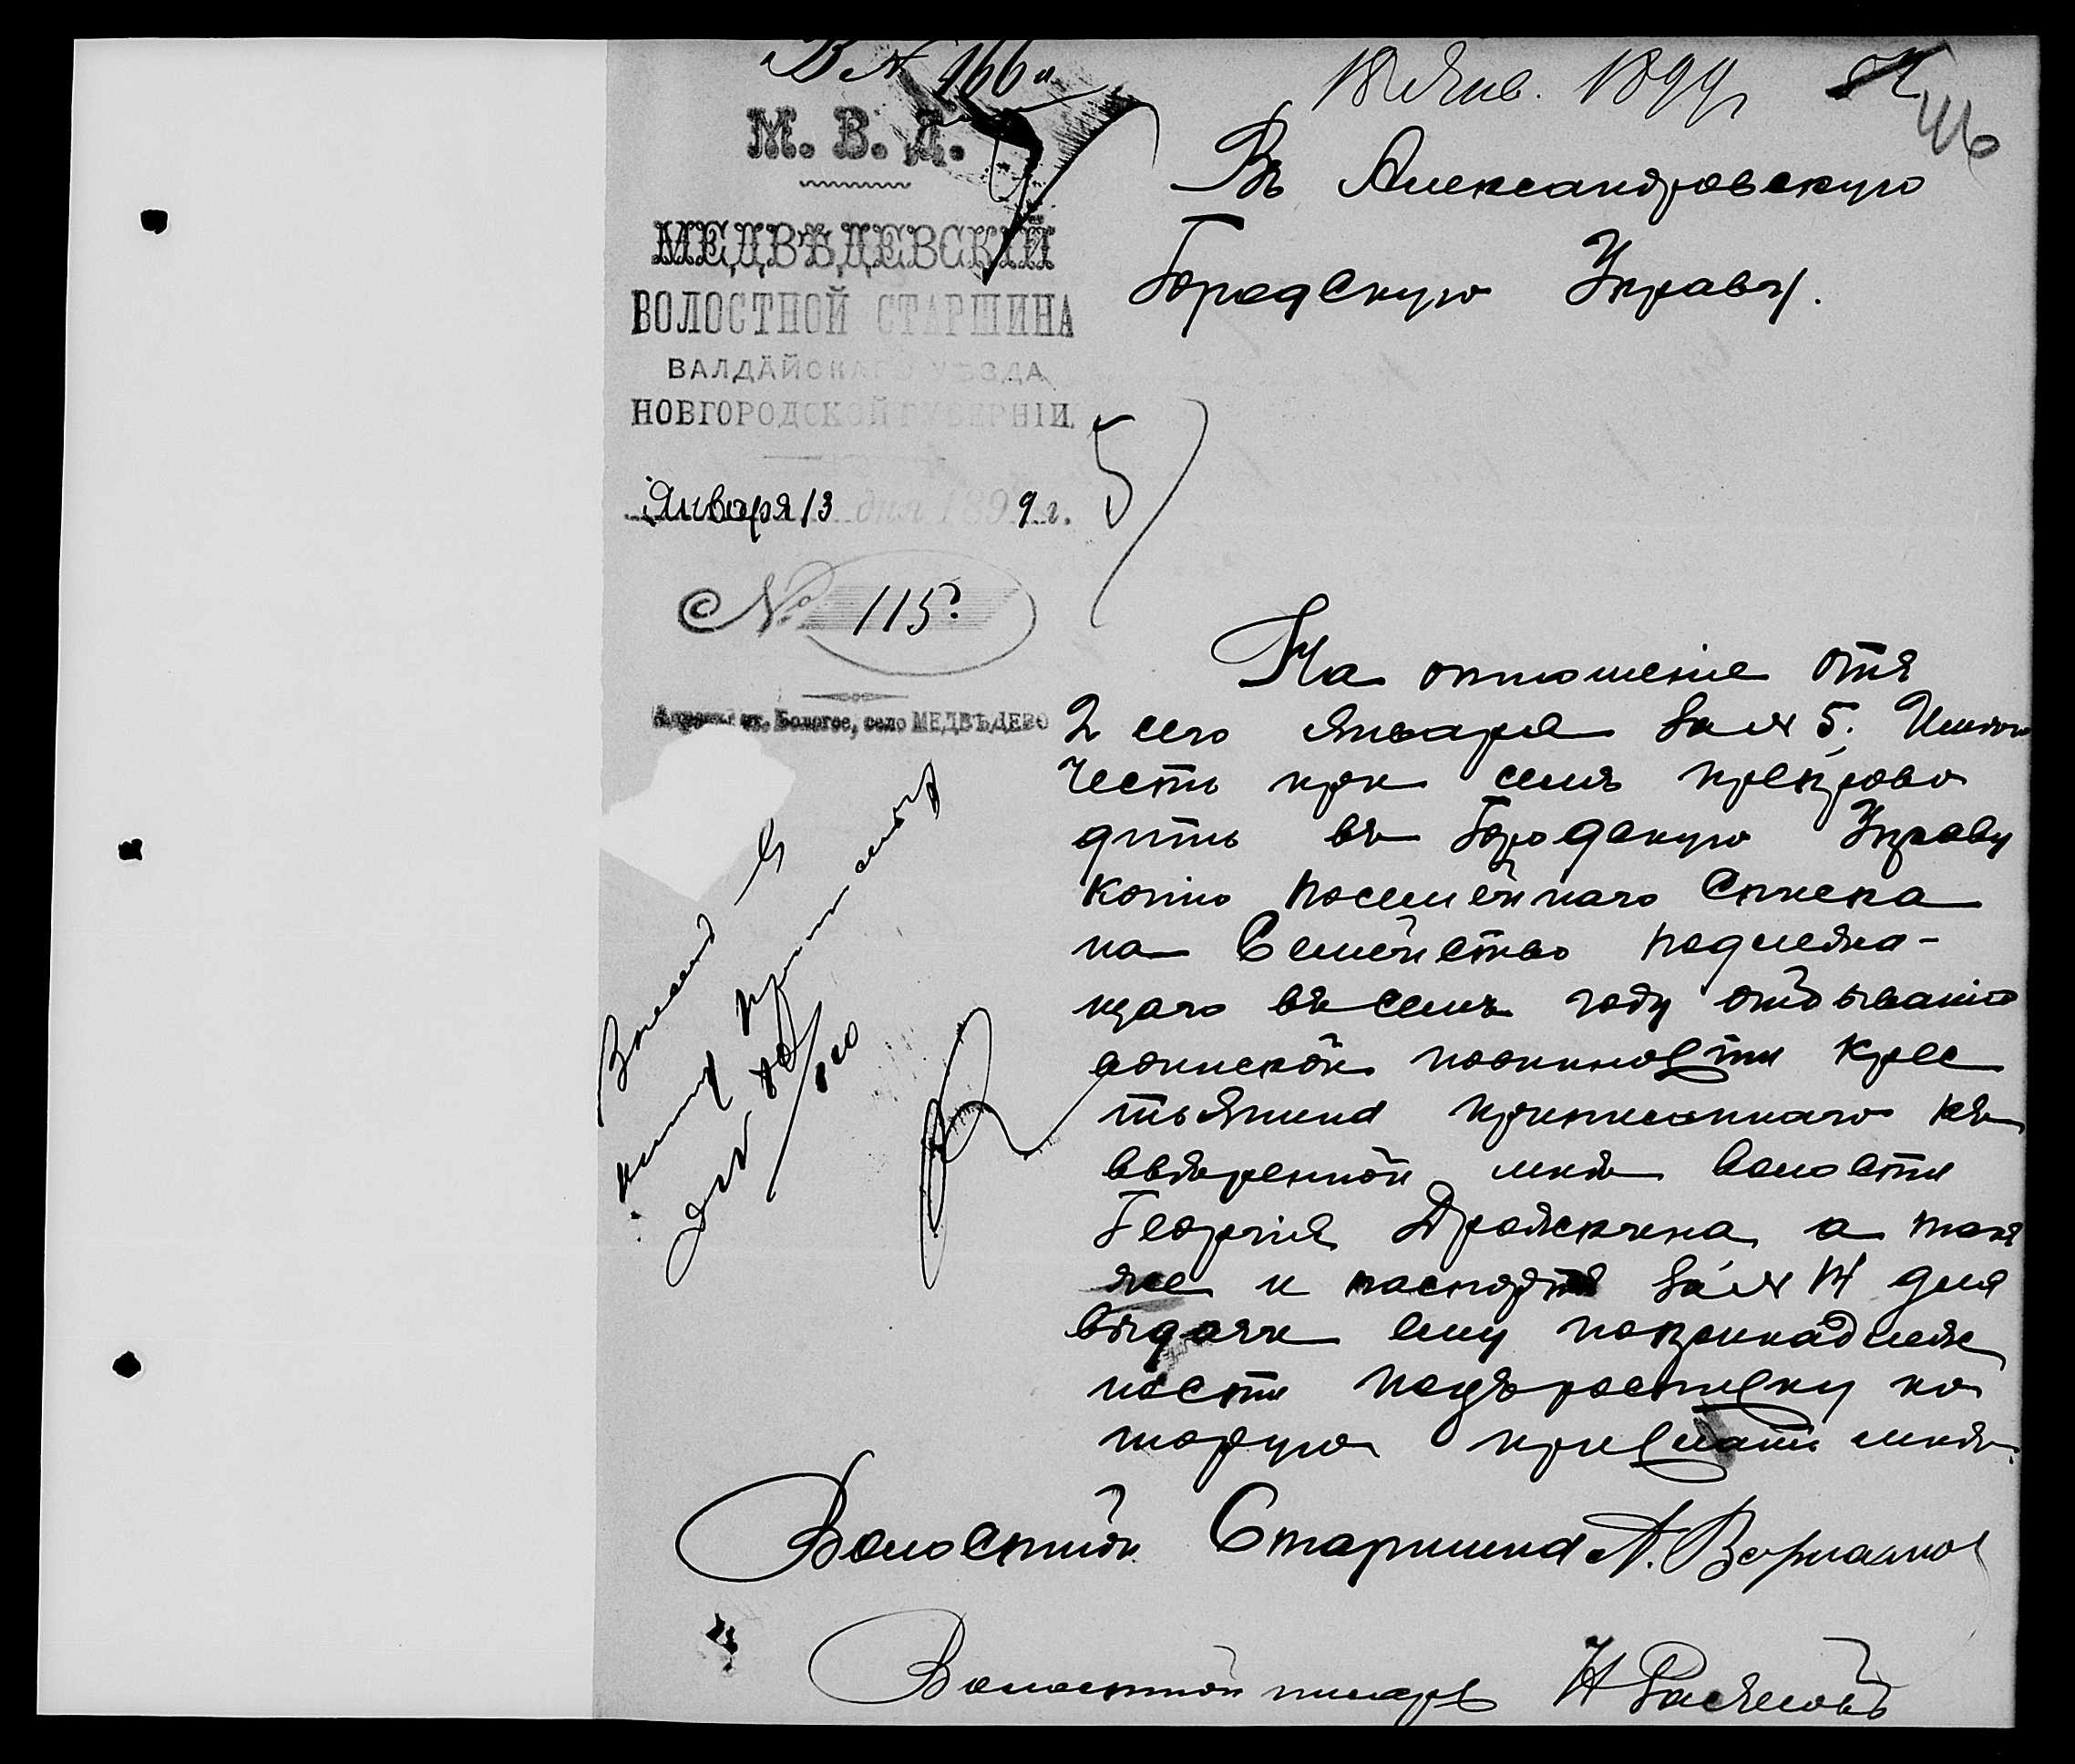 В № 166
18 Янв. 1899 г
46
М. В. Д.
МЕДВѢДЕВСКІЙ
ВОЛОСТНОЙ СТАРШИНА
ВАЛДАЙСКАГО УѢЗДА
НОВГОРОДСКОЙ ГУБЕРНІИ.
Января 13 дня 1899 г.
№ 115
ст. Бологое, село МЕДВѢДЕВО
Въ Александровскую
Городскую Управу.
5
На отношеніе отъ
2 сего Января за № 5. Имѣю
честь при семъ препрово
дить въ Городскую Управу
копію посемейнаго списка
на Семейство подлежа-
щаго въ семъ году отбыванію
воинской повинности крес
тьянина приписаннаго къ
ввѣренной мнѣ волости
Георгія а такъ
же и паспортъ за № 14 для
выдачи ему попринадлеж
ности подъ росписку ко
торую прислать мнѣ.
Волостной Старшина А.
Волостной писарь Н